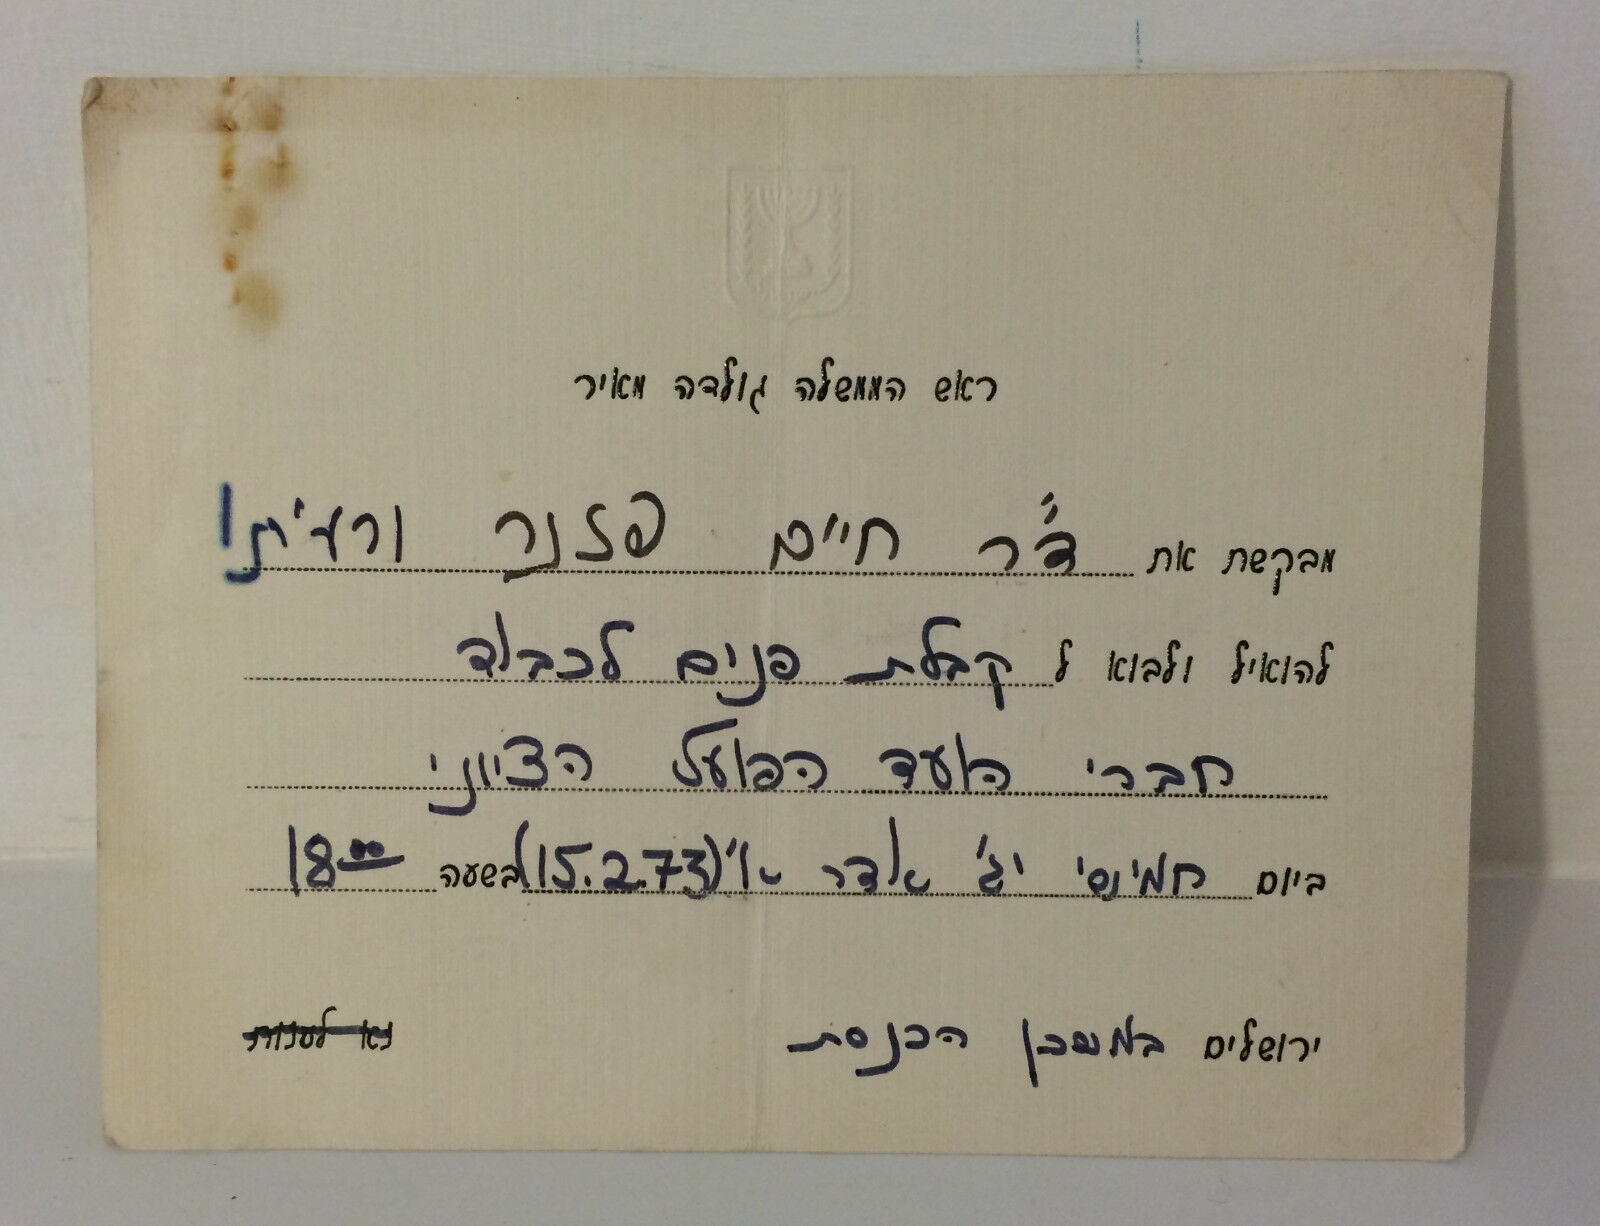 ראש הממשלה גולדה מאיר
מבקשת את ד"ר חיים פזנר ורעיתו
להואיל ולבוא ל קבלת פנים לכבוד
חברי הועד הפועל הציוני
ביום חמישי י"ג אדר א' (15.2.73) בשעה 18⁰⁰
ירושלים במשכן הכנסת נא לענות